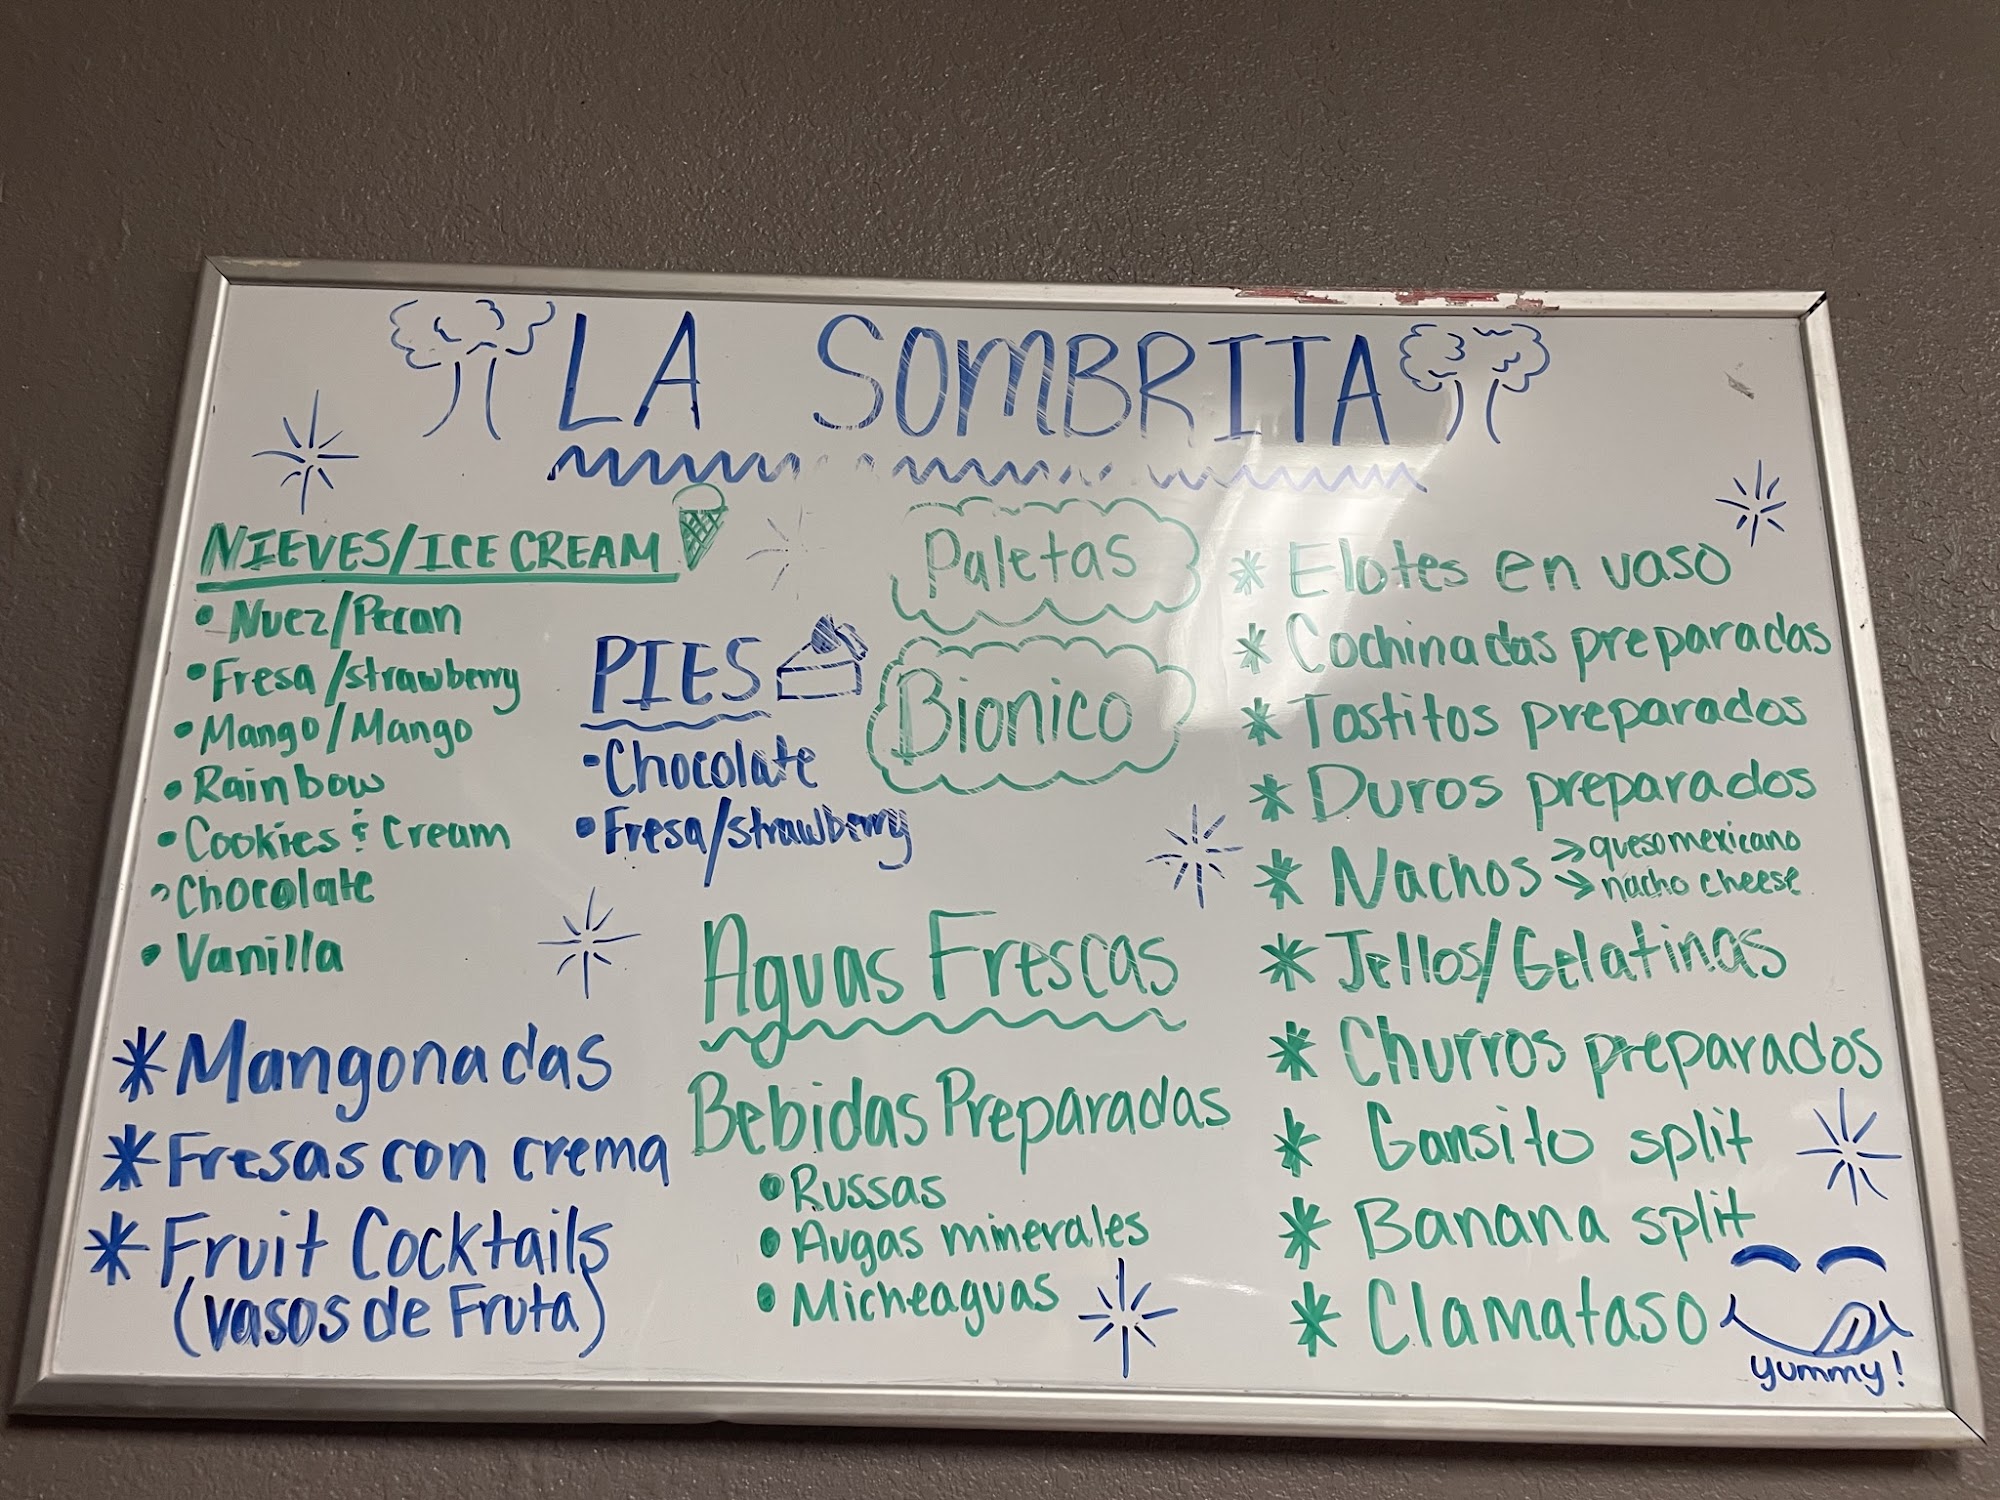 LA SOMBRITA
NIEVES/ICE CREAM
• Nuez/Pecan
• Fresa/strawberry
• Mango/Mango
• Rainbow
• Cookies & Cream
• Chocolate
• Vanilla
* Mangonadas
* Fresas con crema
* Fruit Cocktails
(vasos de Fruta)
PIES
• Chocolate
• Fresa/strawberry
Paletas
Bionico
Aguas Frescas
Bebidas Preparadas
• Russas
• Augas minerales
• Micheaguas
* Elotes en vaso
* Cochinadas preparadas
* Tostitos preparados
* Duros preparados
* Nachos → queso mexicano
→ nacho cheese
* Jellos/Gelatinas
* Churros preparados
* Gansito split
* Banana split
* Clamataso
yummy!